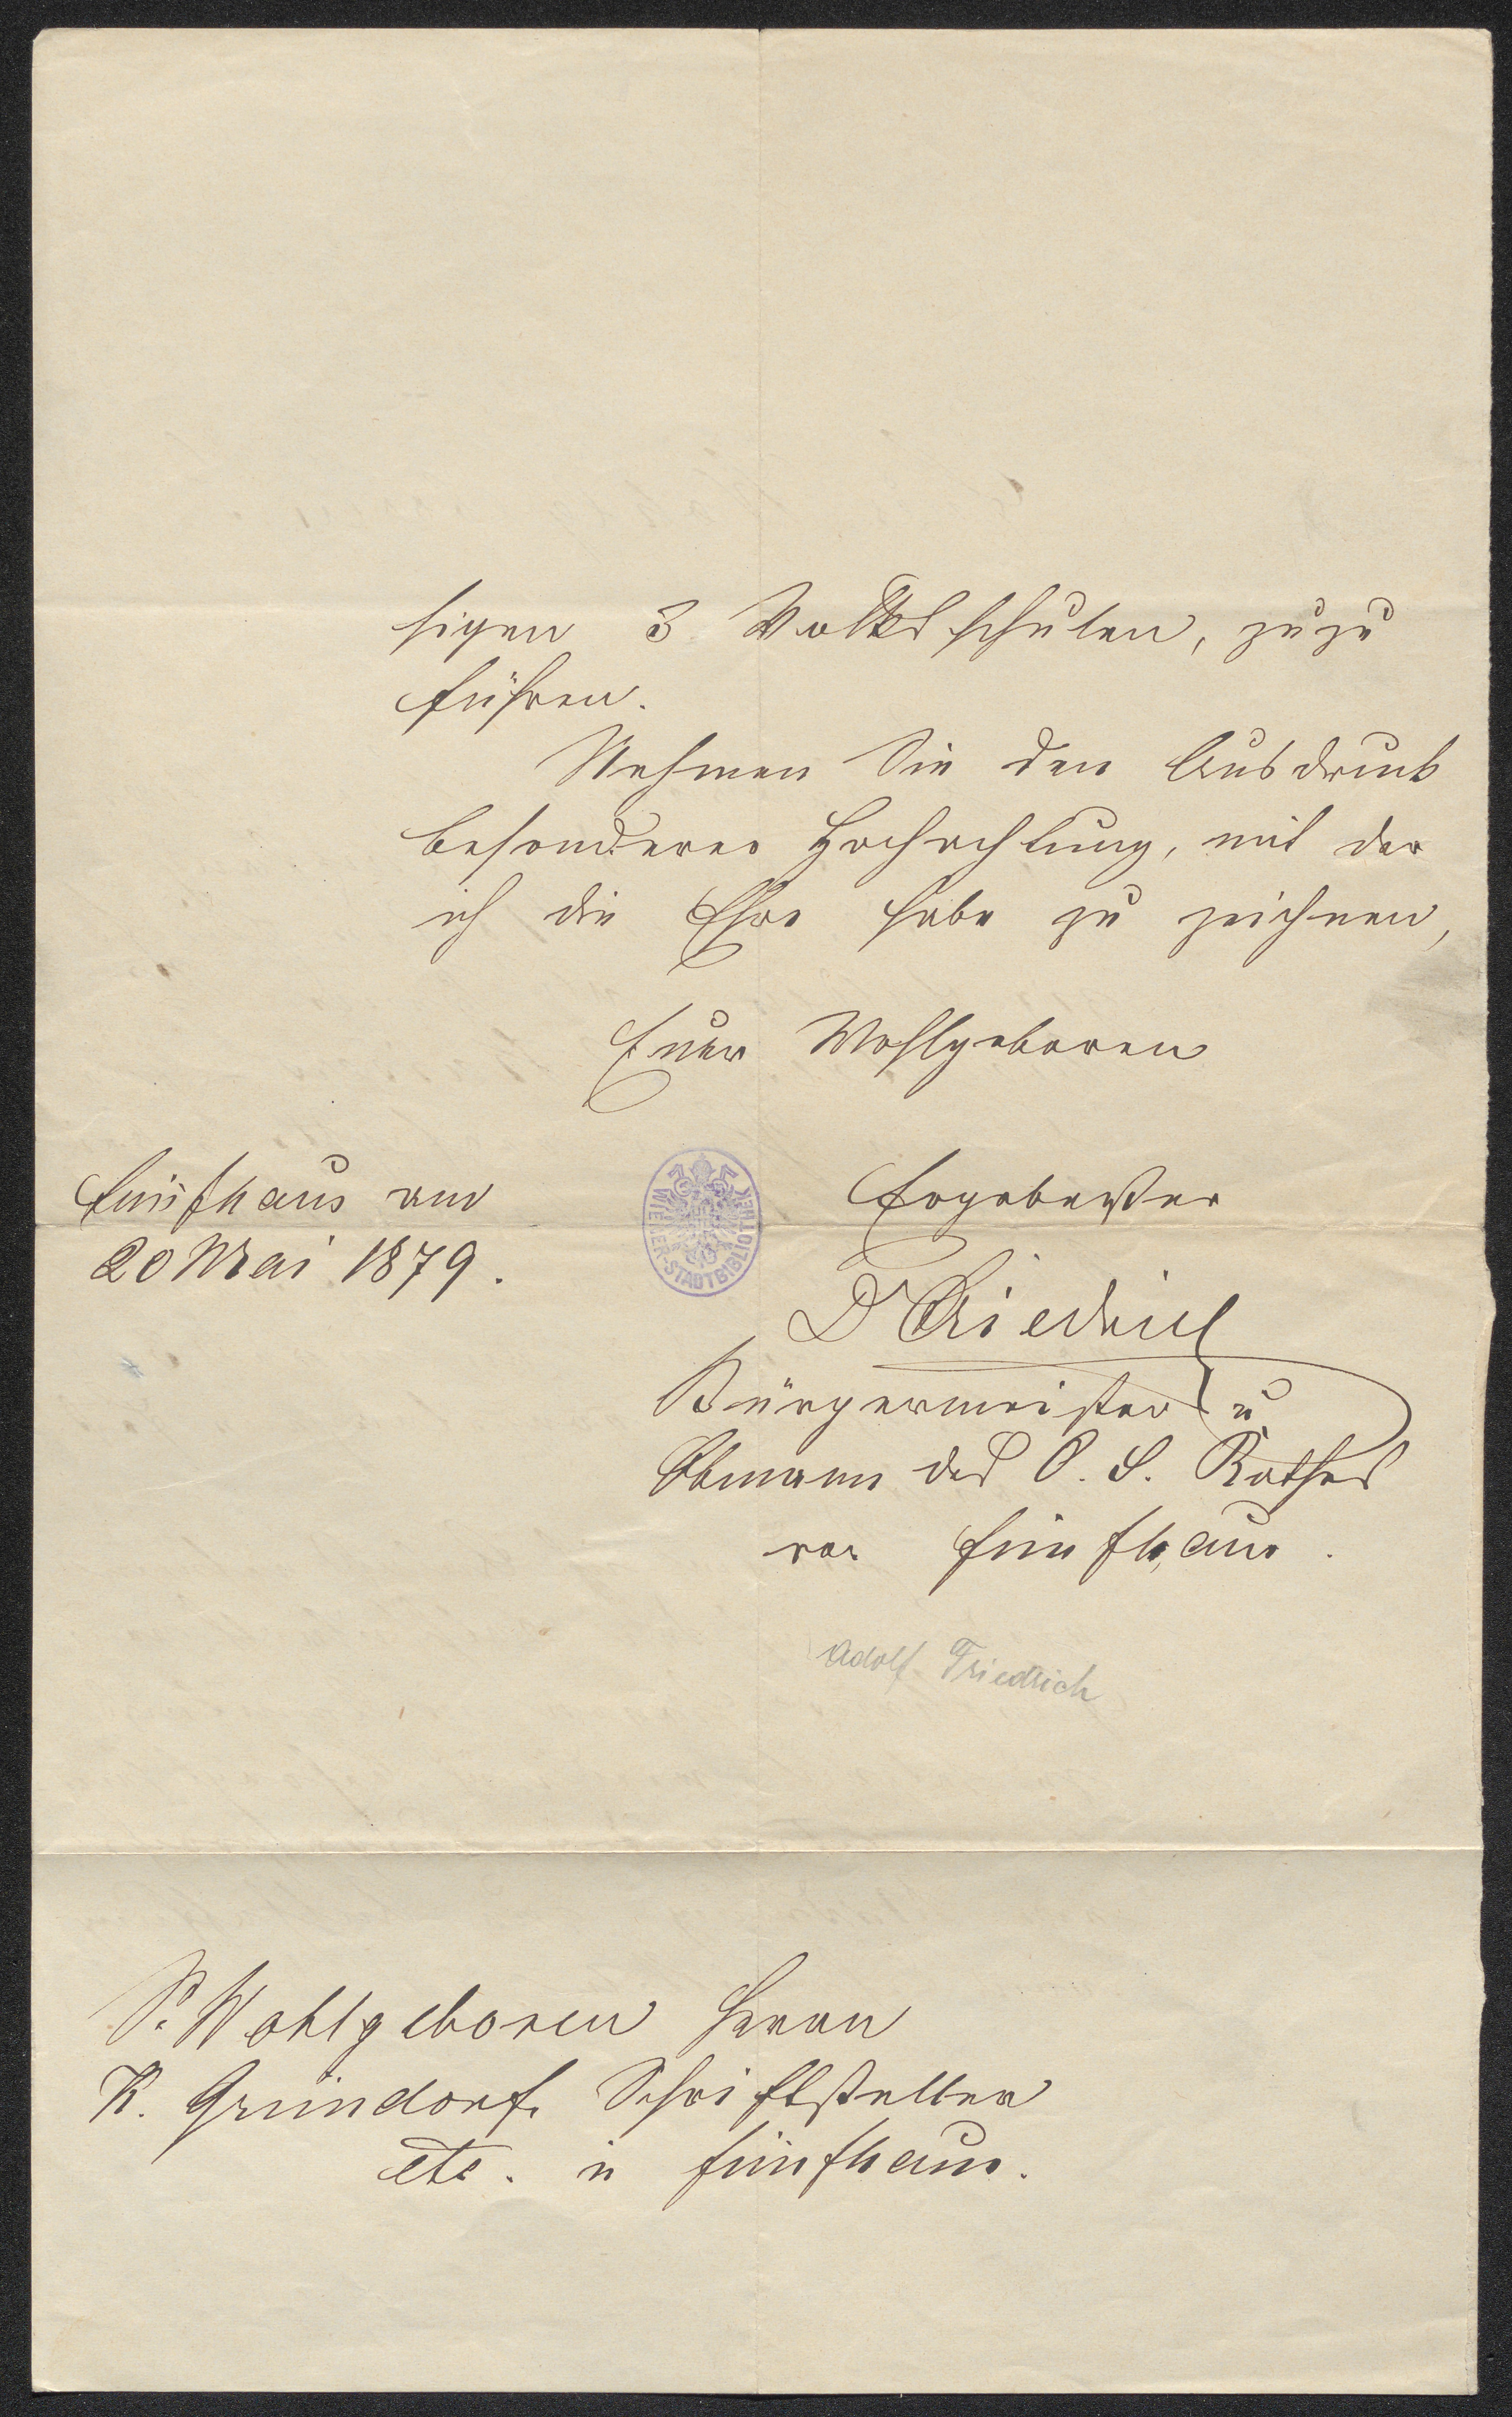 sigen 3 Volksschulen, zuzu
führen.
Nehmen Sie den Ausdruck
besonderer Hochachtung, mit der
ich die Ehre habe zu zeichnen,
Euer Wohlgeboren
Ergebenster
Fünfhaus am
20 Mai 1879.
WIENER-STADTBIBLIOTHEK
DFriedrich
Bürgermeister u
Obmann des O. S. Rathes
von Fünfhaus.
Adolf Friedrich
Sr Wohlgeboren Herrn
K. Gründorf, Schriftsteller
etc. in Fünfhaus.